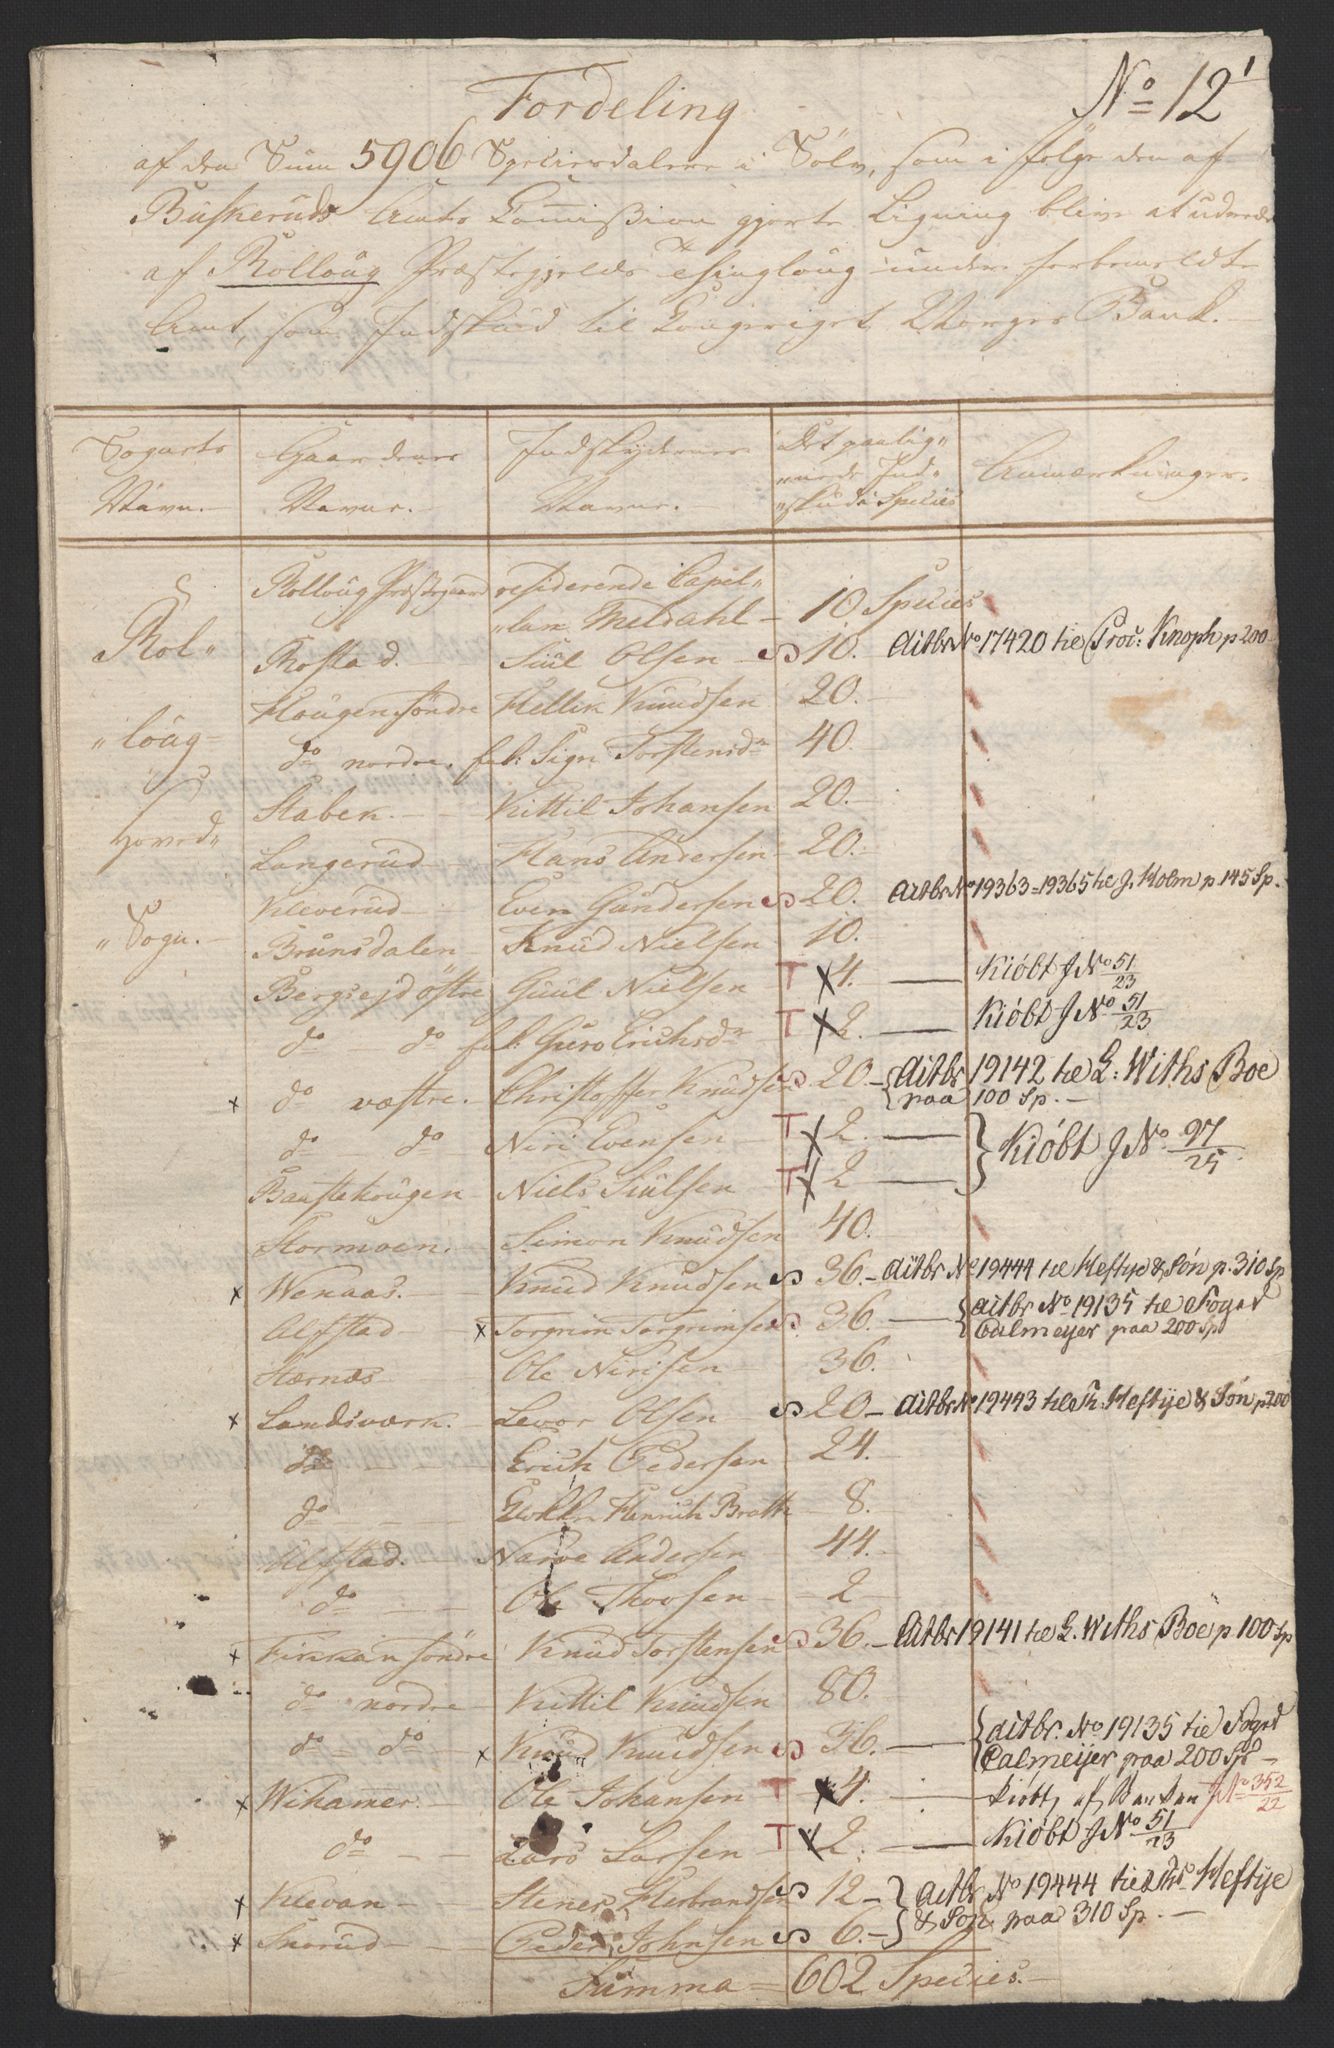 No 12
1
Fordeling
af den Sum 5906 Speciesdaler i Sölv, som i fölge den af
Buskeruds Amts Commission gjorte Ligning blive at udrede
af Rolloug Præstegjelds Thinglaug under forbemeldte
Amt, som Indskud til Kongeriget Norges Bank.
Sognets Gaardenes Indskydernes Det paalig„ Anmærkninger.
Navn. Navne. Navne. „nede Ind„
„skud i Species
Rolloug Præstegaard residerende Capel„
„lan Meldahl 10 Species
Rol„ Rostad. Siul Olsen S 10. Aitbr No 17420 til Proc: Knoph p 200
Hougen söndre Hellik Knudsen 20.
„loug do nordre. Sigri Torstensdr 40.
Staben. Kittil Johansen 20.
Hoved„ Langerud Hans Andersen 20.
Kleverud Even Gundersen S 20. Aitbr No 19363=19365 til J. Holm p. 145 Sp.
„Sogn. Brunsdalen Knud Nielsen 10.
Bergseid östre Guul Nielsen T x 4. Kiöbt J No 51/23
do do Guro Erichsdr T x 2. Kiöbt J No 51/23
x do væstre. Christoffer Knudsen S 20 Aitbr 19142 til G: Withs Boe
paa 100 Sp.
do do Niri Evensen T x 2. } Kiöbt J No 97/25
Baustehougen Niels Siulsen T x 2
Stormoen. Simon Knudsen 40.
x Wenaas. Knud Knudsen S 36. Aitbr No 19444 til Heftye & Sön p. 310 Sp
Alfstad x Torgrim Torgrimsen S 36. { aitbr No 19135 til Foged
Calmeyer paa 200 Sp
Stærnes Ole Nirisen 36.
x Landsværk. Levor Olsen S 20 Aitbr No 19443 til Th. Heftye & Sön p 200
do Erich Pedersen 24.
do Henrich Bratte 8.
Alfstad. Narve Andersen 44.
do Ole Thovsen 2
x Firkan söndre Knud Torstensen S 36. Aitbr 19141 til G. Withs Boe p 100 Sp
do nordre Kittil Knudsen 80.
do do x Knud Knudsen S 36. { aitbr. No 19135 til Foged
Calmeijer paa 200 Sp
x Wihamer. Ole Johansen T x 4. kiöbt af Banken J No 352/22
do Lars Larsen T x 2. Kiöbt J No 51/23
x Klevan Stener Herbrandsen S 12 } aitbr No 19444 til Ths Heftye
x Snorud Peder Johnsen S 6. & Sön paa 310 Sp.
Summa = 602 Species.